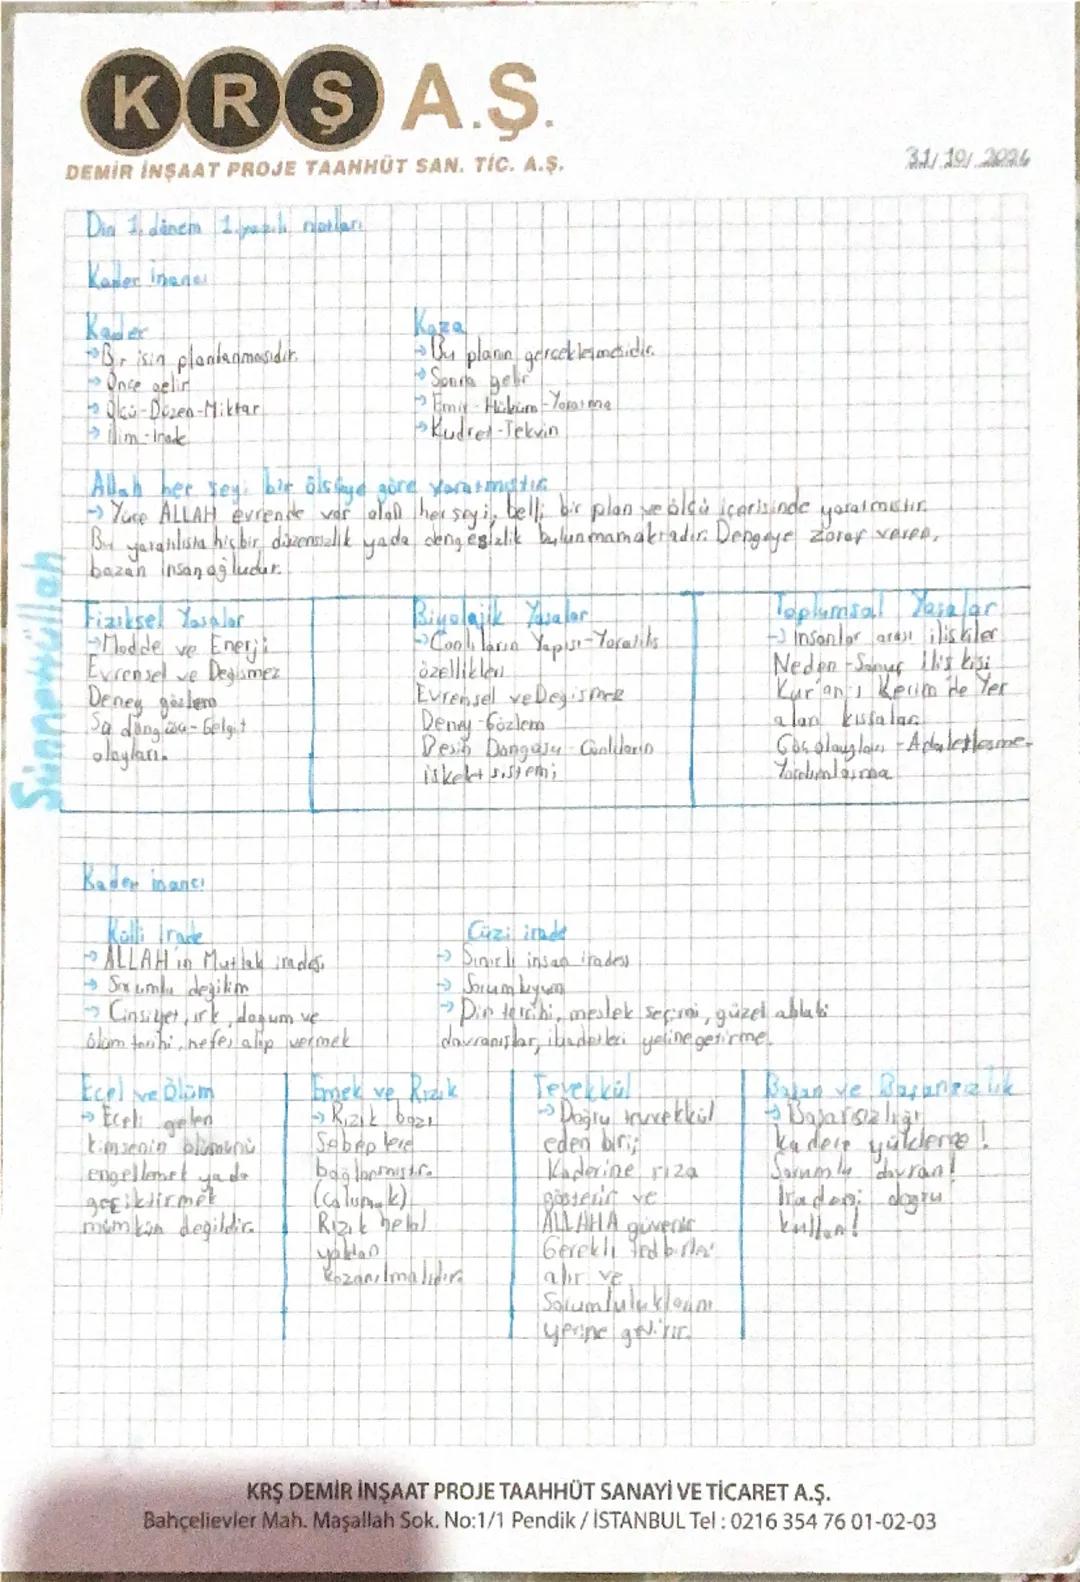 KRŞ A.Ş.
DEMİR İNŞAAT PROJE TAAHHÜT SAN. TİC. A.Ş.
31/10/
Din 1. dönem 1. yazılı notları
Kader inancı
Kader
→ Bir işin planlanmasıdır.
→ Önce gelir
→ Ölçü-Düzen-Miktar
→ ilim-irade
Kaza
→ Bu planın gerçekleşmesidir.
→ Sonra gelir
→ Emir-Hüküm-Yaratma
→ Kudret-Tekvin
Allah her şeyi bir ölçüye göre yaratmıştır.
→ Yüce ALLAH evrende var olan her şeyi, belli bir plan ve ölçü içerisinde yaratmıştır.
Bu yaratılışta hiçbir düzensizlik yada dengesizlik bulunmamaktadır. Dengeye zarar veren,
bazan insanoğludur.
Sünnetüllah
Fiziksel Yasalar
→ Madde ve Enerji
Evrensel ve Değişmez
Deney gözlem
Su döngüsü-Gelgit
olayları.
Biyolojik Yasalar
→ Canlıların Yapısı-Yaratılış
özellikleri
Evrensel ve Değişmez
Deney-Gözlem
Besin Döngüsü-Canlıların
iskelet sistemi
Toplumsal Yasalar
→ İnsanlar arası ilişkiler
Neden-Sonuç ilişkisi
Kur'an-ı Kerim'de Yer
alan kıssalar
Göç olayları-Adaletleşme-
Yardımlaşma
Kader inancı
Külli İrade
→ ALLAH'ın Mutlak iradesi
→ Sorumlu değilim
→ Cinsiyet, ırk, doğum ve
ölüm tarihi, nefes alıp vermek
Cüzi irade
→ Sınırlı insan iradesi
→ Sorumluyum
→ Din tercihi, meslek seçimi, güzel ahlaki
davranışlar, ibadetleri yerine getirme.
Ecel ve Ölüm
→ Eceli gelen
kimsenin ölümünü
engellemek ya da
geciktirmek
mümkün değildir.
Emek ve Rızık
→ Rızık bazı
Sebeplere
bağlanmıştır.
(çalışmak)
Rızık helal
yoldan
kazanılmalıdır.
Tevekkül
→ Doğru tevekkül
eden biri;
Kaderine rıza
gösterir ve
ALLAHA güvenir
Gerekli tedbirler
alır ve
Sorumluluklarını
yerine getirir.
Başarı ve Başarısızlık
→ Başarısızlığı
kadere yükleme!
Sorumlu davran!
İradeni doğru
kullan!
KRŞ DEMİR İNŞAAT PROJE TAAHHÜT SANAYİ VE TİCARET A.Ş.
Bahçelievler Mah. Maşallah Sok. No:1/1 Pendik / İSTANBUL Tel : 0216 354 76 01-02-03